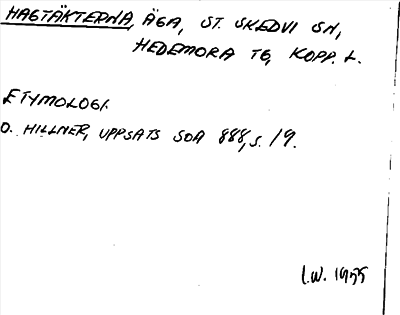 HAGTÄKTERNA, ÄGA, ST. SKEDVI SN,
HEDEMORA TG, KOPP. L.
ETYMOLOGI.
O. HILLNER, UPPSATS SOA 888, S. 19.
I.W. 1955